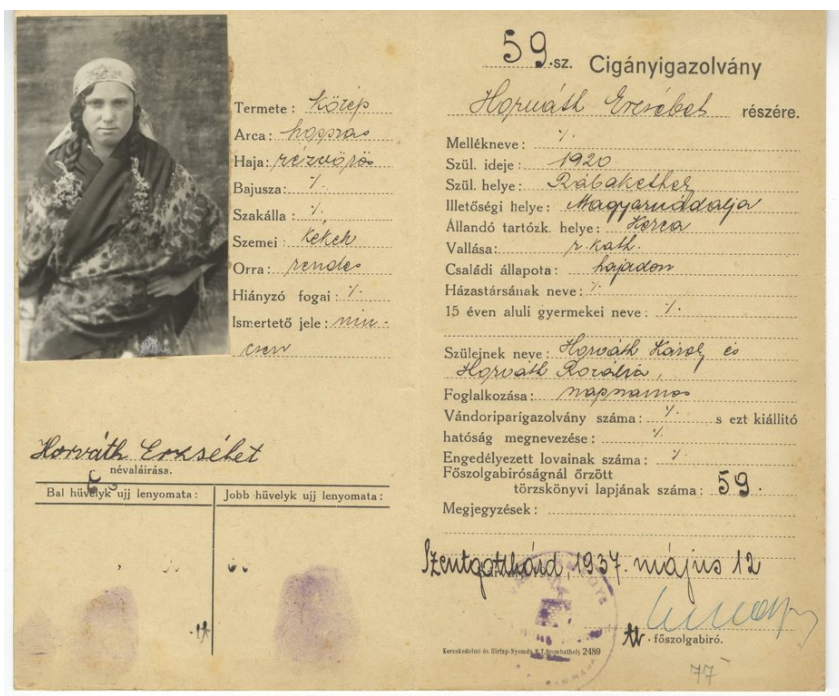 59.sz. Cigányigazolvány
Horváth Erzsébet részére.
Termete: közép
Arca: hosszas
Haja: rézvörös
Bajusza: ·/.
Szakálla: ·/.
Szemei: kékek
Orra: rendes
Hiányzó fogai: ·/.
Ismertető jele: nin-
csen
Horváth Erzsébet
névaláirása.
Bal hüvelyk ujj lenyomata:
Jobb hüvelyk ujj lenyomata:
Mellékneve: ·/.
Szül. ideje: 1920
Szül. helye: Rábakethely
Illetőségi helye: Magyarnádalja
Állandó tartózk. helye:
Vallása: r. kath.
Családi állapota: hajadon
Házastársának neve: ·/.
15 éven aluli gyermekei neve: ·/.
Szülejnek neve: Horváth Károly és
Horváth Rozália,
Foglalkozása: napszámos
Vándoriparigazolvány száma: ·/. s ezt kiállitó
hatóság megnevezése: ·/.
Engedélyezett lovainak száma: ·/.
Főszolgabiróságnál őrzött
törzskönyvi lapjának száma: 59.
Megjegyzések:
Szentgotthárd, 1937. május 12
főszolgabiró.
Kereskedelmi és Hirlap-Nyomda K.T. Szombathely 2489
77